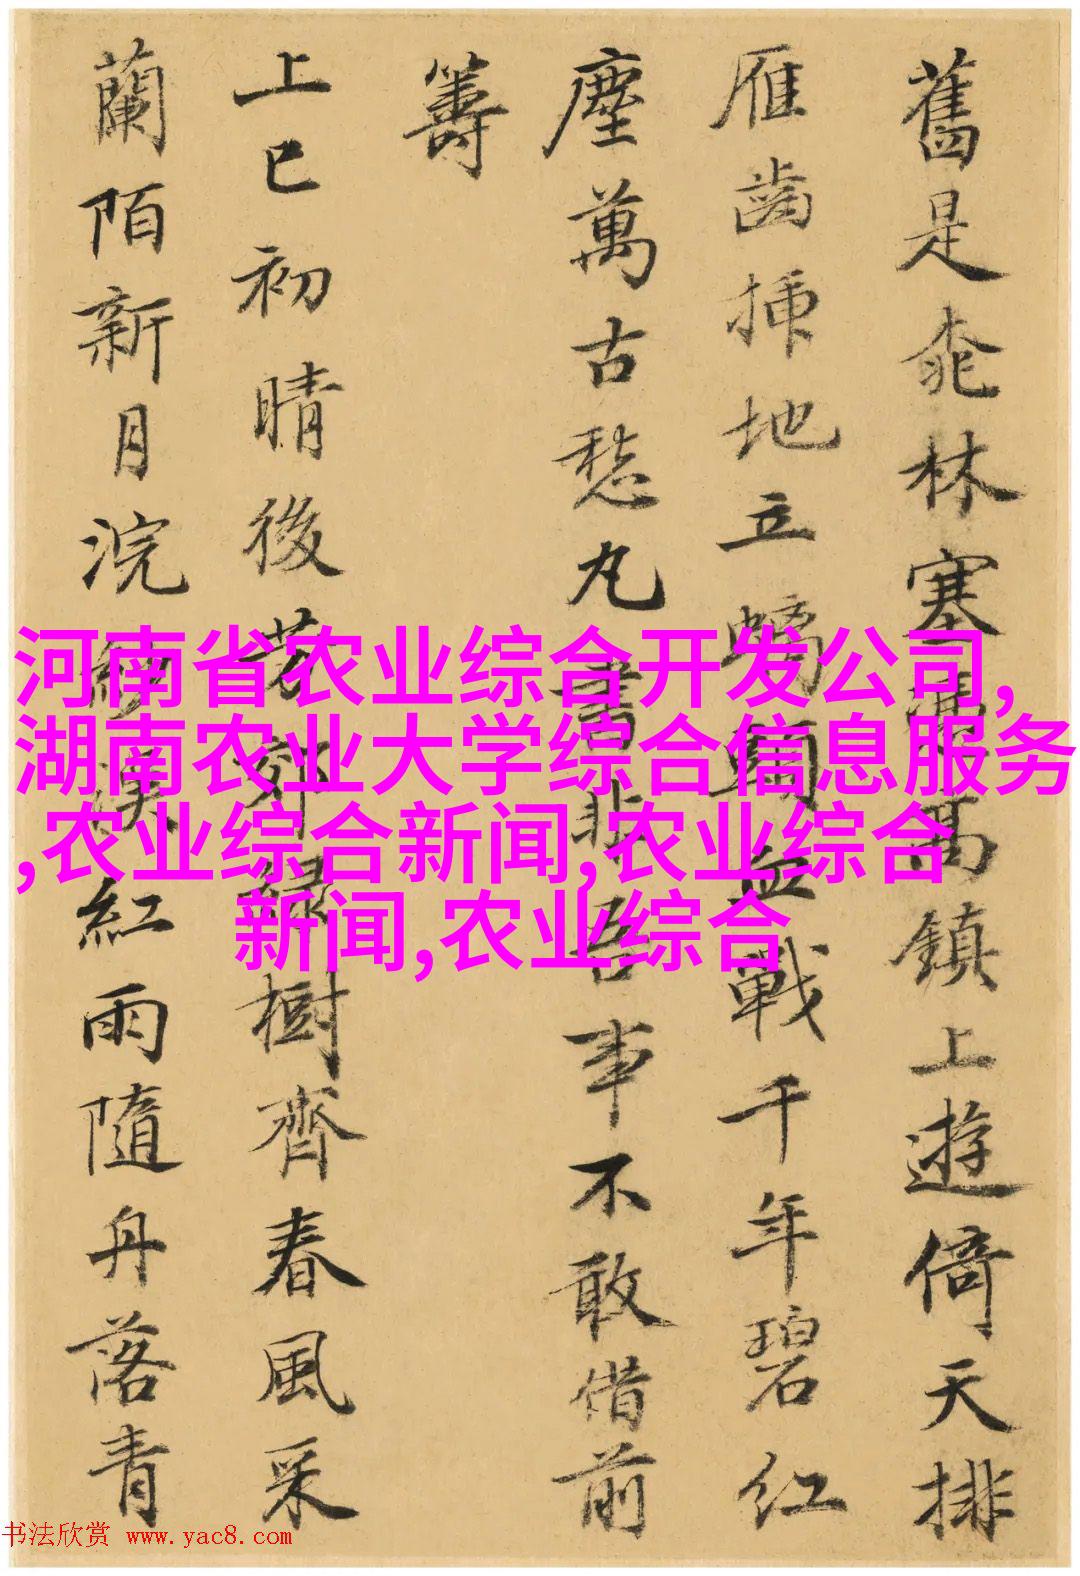 舊是桃林塞高鎮上遊倚天排
雁齒插地立螭頭血戰千年碧红
塵萬古愁丸書非吾事不敢借前
籌
上巳初晴後芳郊緑樹齊春風采
蘭陌新月浣紗溪紅雨隨舟落青
河南省农业综合开发公司,
湖南农业大学综合信息服务
,农业综合新闻,农业综合
新闻,农业综合
书法欣赏 www.yac8.com